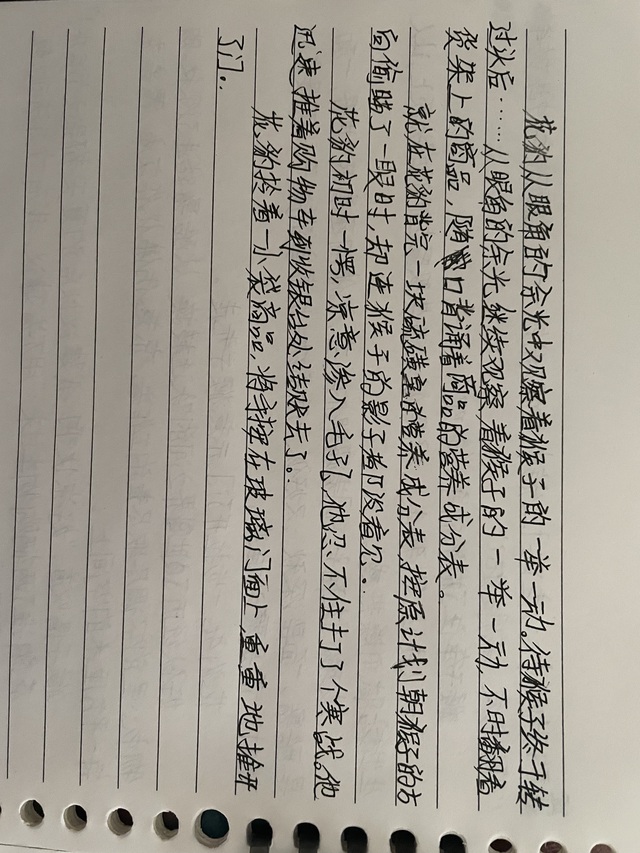 花豹从眼角的余光中观察着猴子的一举一动。待猴子终于转
过头后……从眼角的余光继续观察着猴子的一举一动,不时翻看
货架上的商品,随口背诵着商品的营养成分表。
就在花豹背完一块硫磺皂的营养成分表,按原计划朝猴子的方
向偷瞄了一眼时,却连猴子的影子都没看见。
花豹初时一愣,凉意渗入毛孔,他忍不住打了个寒战。他
迅速推着购物车到收银台处结账去了。
花豹拎着一小袋商品,将手按在玻璃门面上,重重地推开
了门。